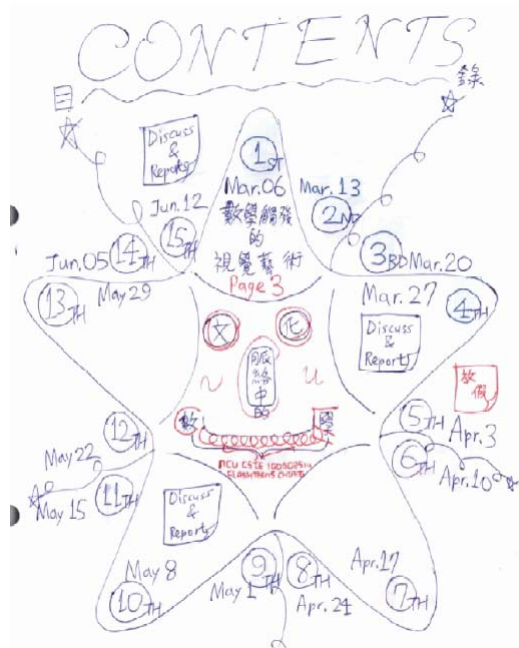 CONTENTS
目
錄
Discuss
&
Reports
1ST
Mar.06
數學觸發
的
視覺藝術
Page 3
Mar.13
2ND
3RD Mar.20
Mar.27
4TH
Discuss
&
Reports
放
假
5TH
Apr.3
6TH
Apr.10
Apr.17
7TH
8TH
Apr.24
9TH
May 1
May 8
10TH
Discuss
&
Reports
11TH
May 15
12TH
May 22
13TH
May 29
14TH
Jun.05
15TH
Jun.12
文
化
脈
絡
中
的
數
學